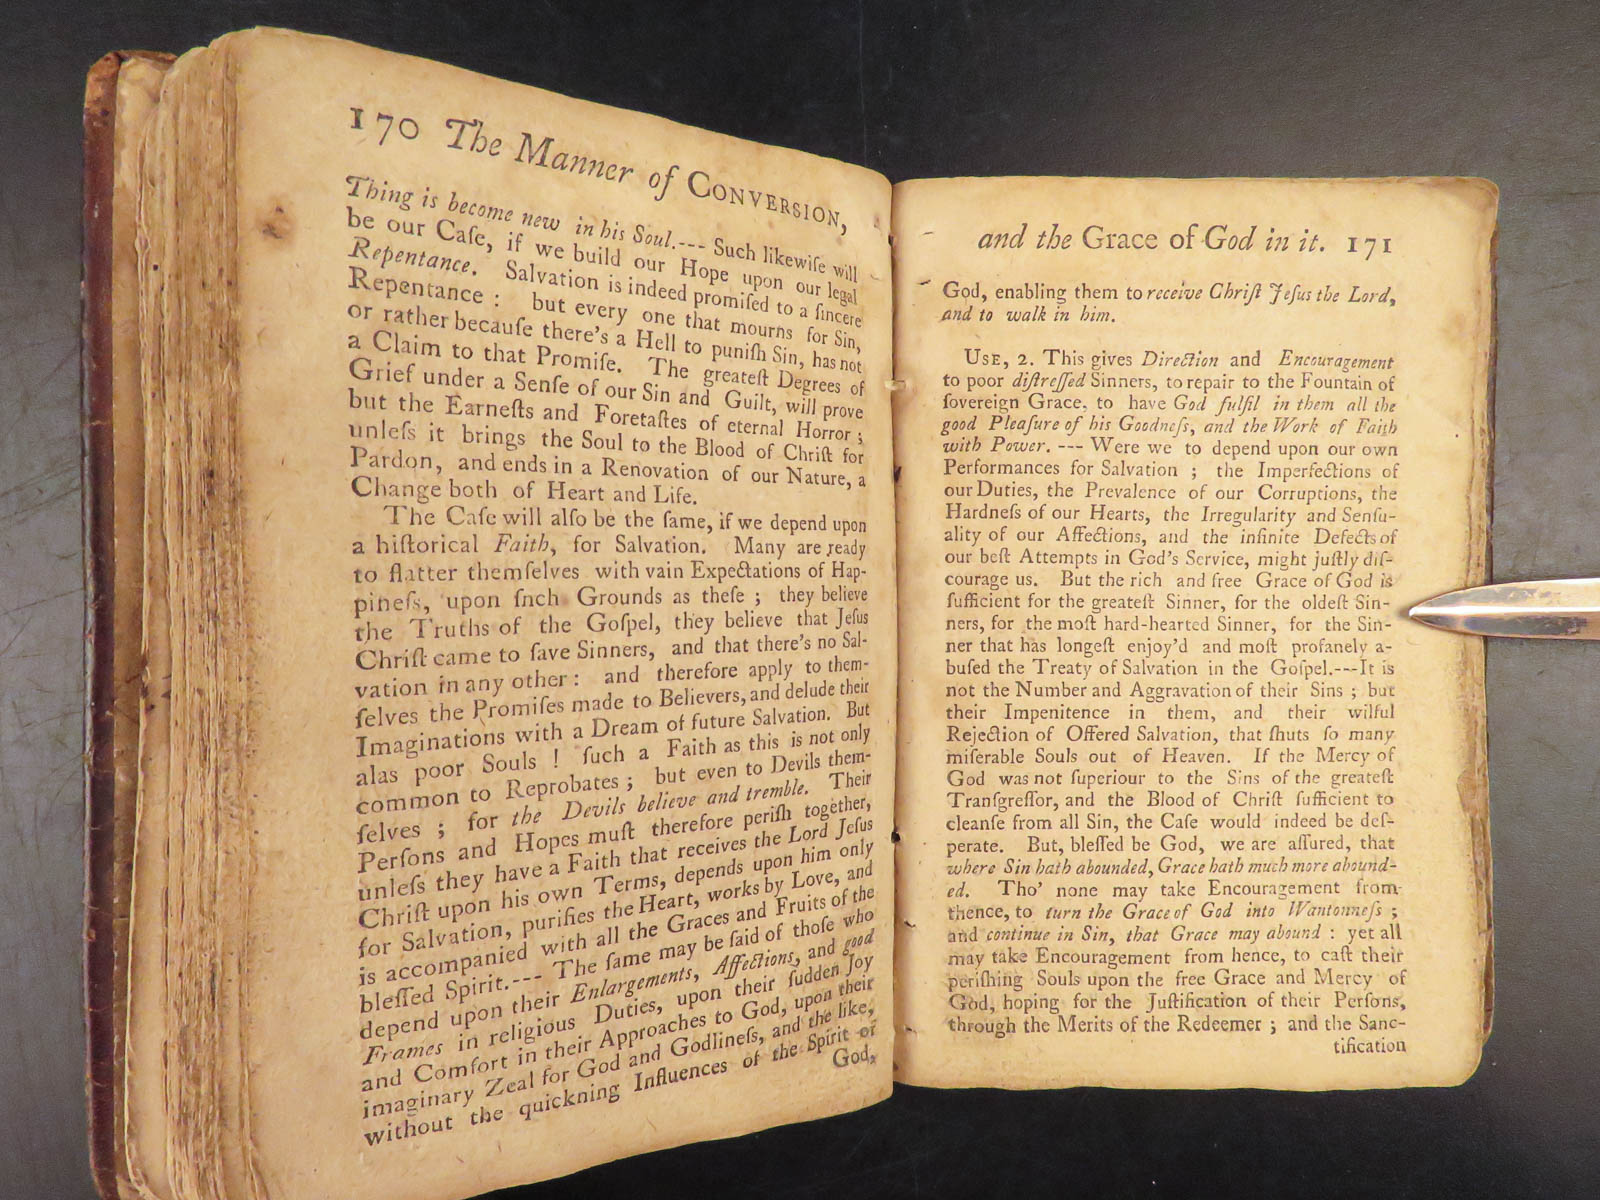 170 The Manner of CONVERSION,
Thing is become new in his Soul.--- Such likewiſe will
be our Caſe, if we build our Hope upon our legal
Repentance. Salvation is indeed promiſed to a ſincere
Repentance : but every one that mourns for Sin,
or rather becauſe there's a Hell to puniſh Sin, has not
a Claim to that Promiſe. The greateſt Degrees of
Grief under a Senſe of our Sin and Guilt, will prove
but the Earneſts and Foretaſtes of eternal Horror ;
unleſs it brings the Soul to the Blood of Chriſt for
Pardon, and ends in a Renovation of our Nature, a
Change both of Heart and Life.
The Caſe will alſo be the ſame, if we depend upon
a hiſtorical Faith, for Salvation. Many are ready
to flatter themſelves with vain Expectations of Hap-
pineſs, upon ſnch Grounds as theſe ; they believe
the Truths of the Goſpel, they believe that Jeſus
Chriſt came to ſave Sinners, and that there's no Sal-
vation in any other : and therefore apply to them-
ſelves the Promiſes made to Believers, and delude their
Imaginations with a Dream of future Salvation. But
alas poor Souls ! ſuch a Faith as this is not only
common to Reprobates ; but even to Devils them-
ſelves ; for the Devils believe and tremble. Their
Perſons and Hopes muſt therefore periſh together,
unleſs they have a Faith that receives the Lord Jeſus
Chriſt upon his own Terms, depends upon him only
for Salvation, purifies the Heart, works by Love, and
is accompanied with all the Graces and Fruits of the
bleſſed Spirit.--- The ſame may be ſaid of thoſe who
depend upon their Enlargements, Affections, and good
Frames in religious Duties, upon their ſudden Joy
and Comfort in their Approaches to God, upon their
imaginary Zeal for God and Godlineſs, and the like,
without the quickning Influences of the Spirit of
God,
and the Grace of God in it. 171
God, enabling them to receive Chriſt Jeſus the Lord,
and to walk in him.
USE, 2. This gives Direction and Encouragement
to poor diſtreſſed Sinners, to repair to the Fountain of
ſovereign Grace, to have God fulfil in them all the
good Pleaſure of his Goodneſs, and the Work of Faith
with Power. --- Were we to depend upon our own
Performances for Salvation ; the Imperfections of
our Duties, the Prevalence of our Corruptions, the
Hardneſs of our Hearts, the Irregularity and Senſu-
ality of our Affections, and the infinite Defects of
our beſt Attempts in God's Service, might juſtly diſ-
courage us. But the rich and free Grace of God is
ſufficient for the greateſt Sinner, for the oldeſt Sin-
ners, for the moſt hard-hearted Sinner, for the Sin-
ner that has longeſt enjoy'd and moſt profanely a-
buſed the Treaty of Salvation in the Goſpel.---It is
not the Number and Aggravation of their Sins ; but
their Impenitence in them, and their wilful
Rejection of Offered Salvation, that ſhuts ſo many
miſerable Souls out of Heaven. If the Mercy of
God was not ſuperiour to the Sins of the greateſt
Tranſgreſſor, and the Blood of Chriſt ſufficient to
cleanſe from all Sin, the Caſe would indeed be deſ-
perate. But, bleſſed be God, we are aſſured, that
where Sin hath abounded, Grace hath much more abound-
ed. Tho' none may take Encouragement from
thence, to turn the Grace of God into Wantonneſs ;
and continue in Sin, that Grace may abound : yet all
may take Encouragement from hence, to caſt their
periſhing Souls upon the free Grace and Mercy of
God, hoping for the Juſtification of their Perſons,
through the Merits of the Redeemer ; and the Sanc-
tification